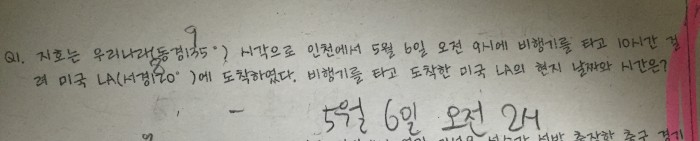 9
Q1. 지호는 우리나라(동경135°) 시각으로 인천에서 5월 6일 오전 9시에 비행기를 타고 10시간 걸
8
려 미국 LA(서경120°)에 도착하였다. 비행기를 타고 도착한 미국 LA의 현지 날짜와 시간은?
- 5월 6일 오전 2시
출장한 축구 경기